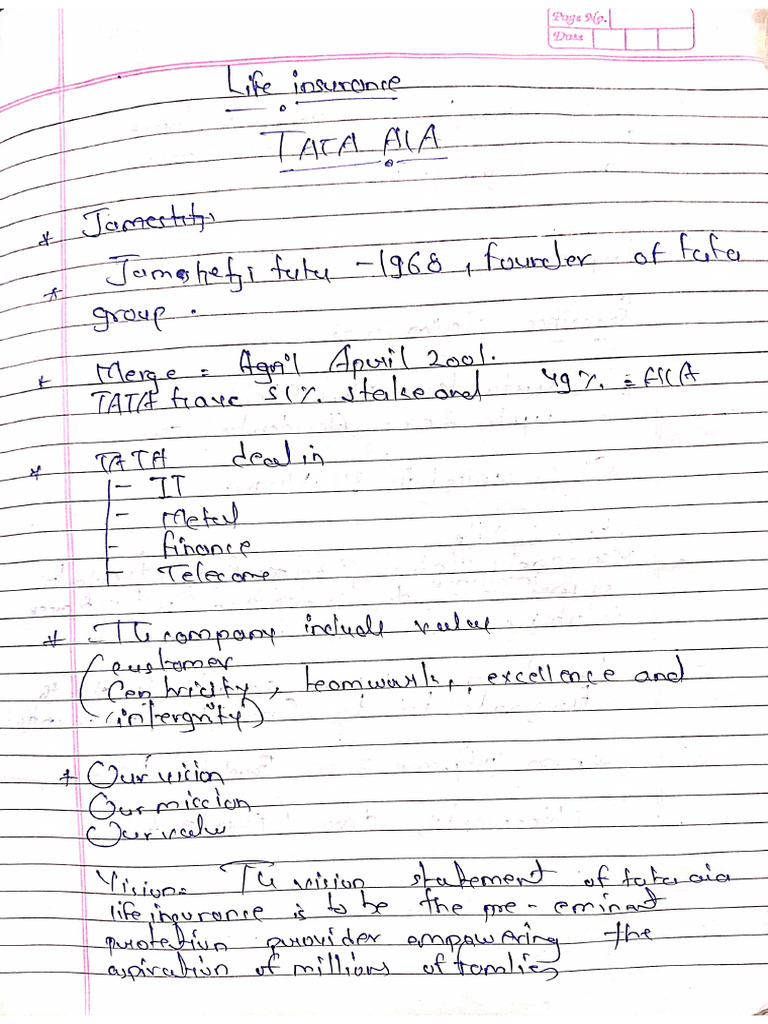 Page No.
Date
Life insurance
TATA AIA
* Jamestitji
* Jamshetji tata - 1968, founder of tata
group.
* Merge = Agril April 2001.
TATA have 51% stake and 49% = AIA
* TATA deal in
- IT
- Metal
- finance
- Telecome
* The company include value
(customer
Centricity, teamwork, excellence and
intergrity)
* Our vision
Our mission
Our value
Vision = The vision statement of tata aia
life insurance is to be the pre-eminant
protetion provider empowering the
aspiration of millions of famlies